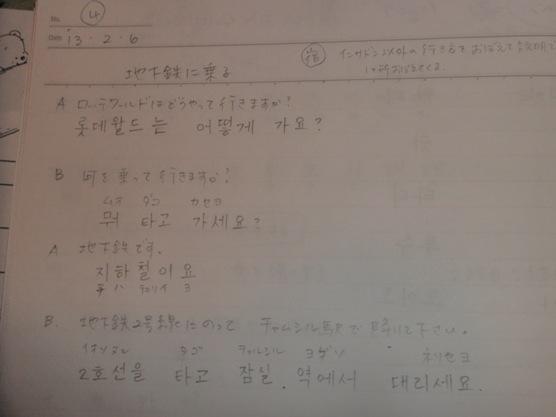 No. 4
Date 13・2・6
宿 インサドン以外の行き方をおぼえて説明で
1ヶ所おぼえてくる。
地下鉄に乗る
A ロッテワールドはどうやって行きますか?
롯데월드 는 어떻게 가요?
B 何を乗って行きますか?
ムオ タゴ カセヨ
뭐 타고 가세요?
A 地下鉄です。
지하철이요
チハ チョリイ ヨ
B. 地下鉄2号線にのって チャムシル駅で降りて下さい。
タゴ チャムシル ヨゲソ ネリセヨ
2호선을 타고 잠실. 역에서 대리세요.